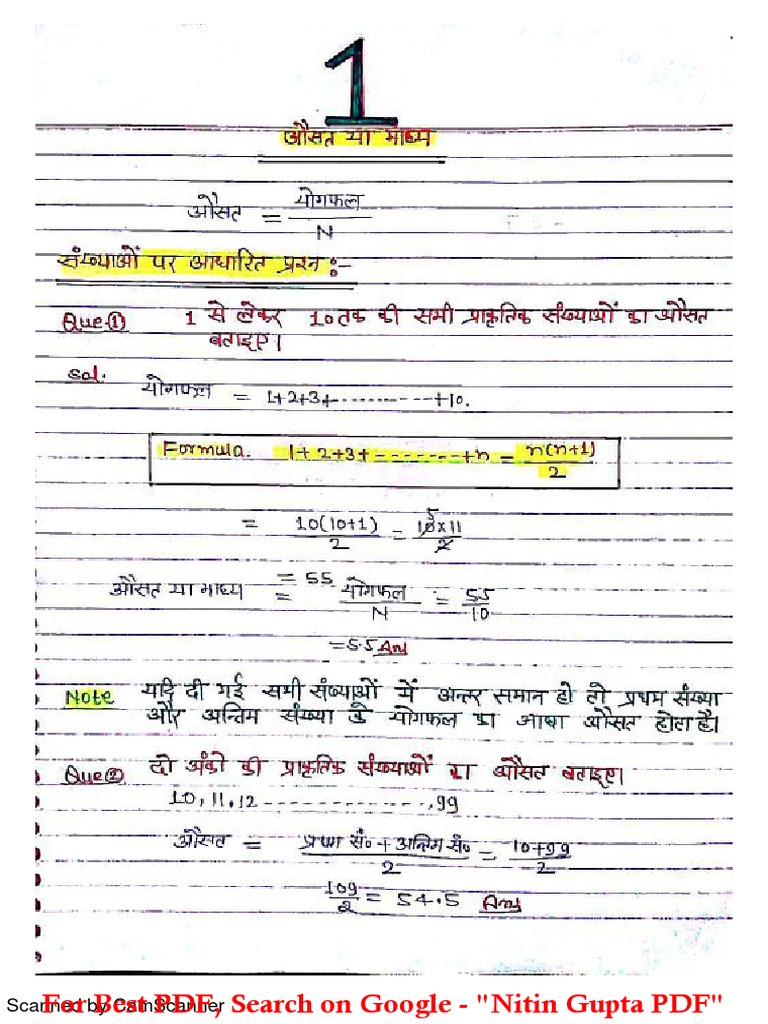 1
औसत या माध्य
औसत = योगफल / N
संख्याओं पर आधारित प्रश्न :-
Que.(1) 1 से लेकर 10 तक की सभी प्राकृतिक संख्याओं का औसत
बताइए।
Sol. योगफल = 1+2+3+----------+10.
Formula. 1+2+3+-------+n = n(n+1)/2
= 10(10+1)/2 = 10×11/2 5
= 55
औसत या माध्य = योगफल/N = 55/10
=5.5 Ans
Note यदि दी गई सभी संख्याओं में अन्तर समान हो तो प्रथम संख्या
और अन्तिम संख्या के योगफल का आधा औसत होता है।
Que(2) दो अंको की प्राकृतिक संख्याओं का औसत बताइए।
10,11,12--------------,99
औसत = प्रथम सं० + अन्तिम सं०/2 = 10+99/2
109/2 = 54.5 Ans
Scanned by CamScanner
For Best PDF, Search on Google - "Nitin Gupta PDF"